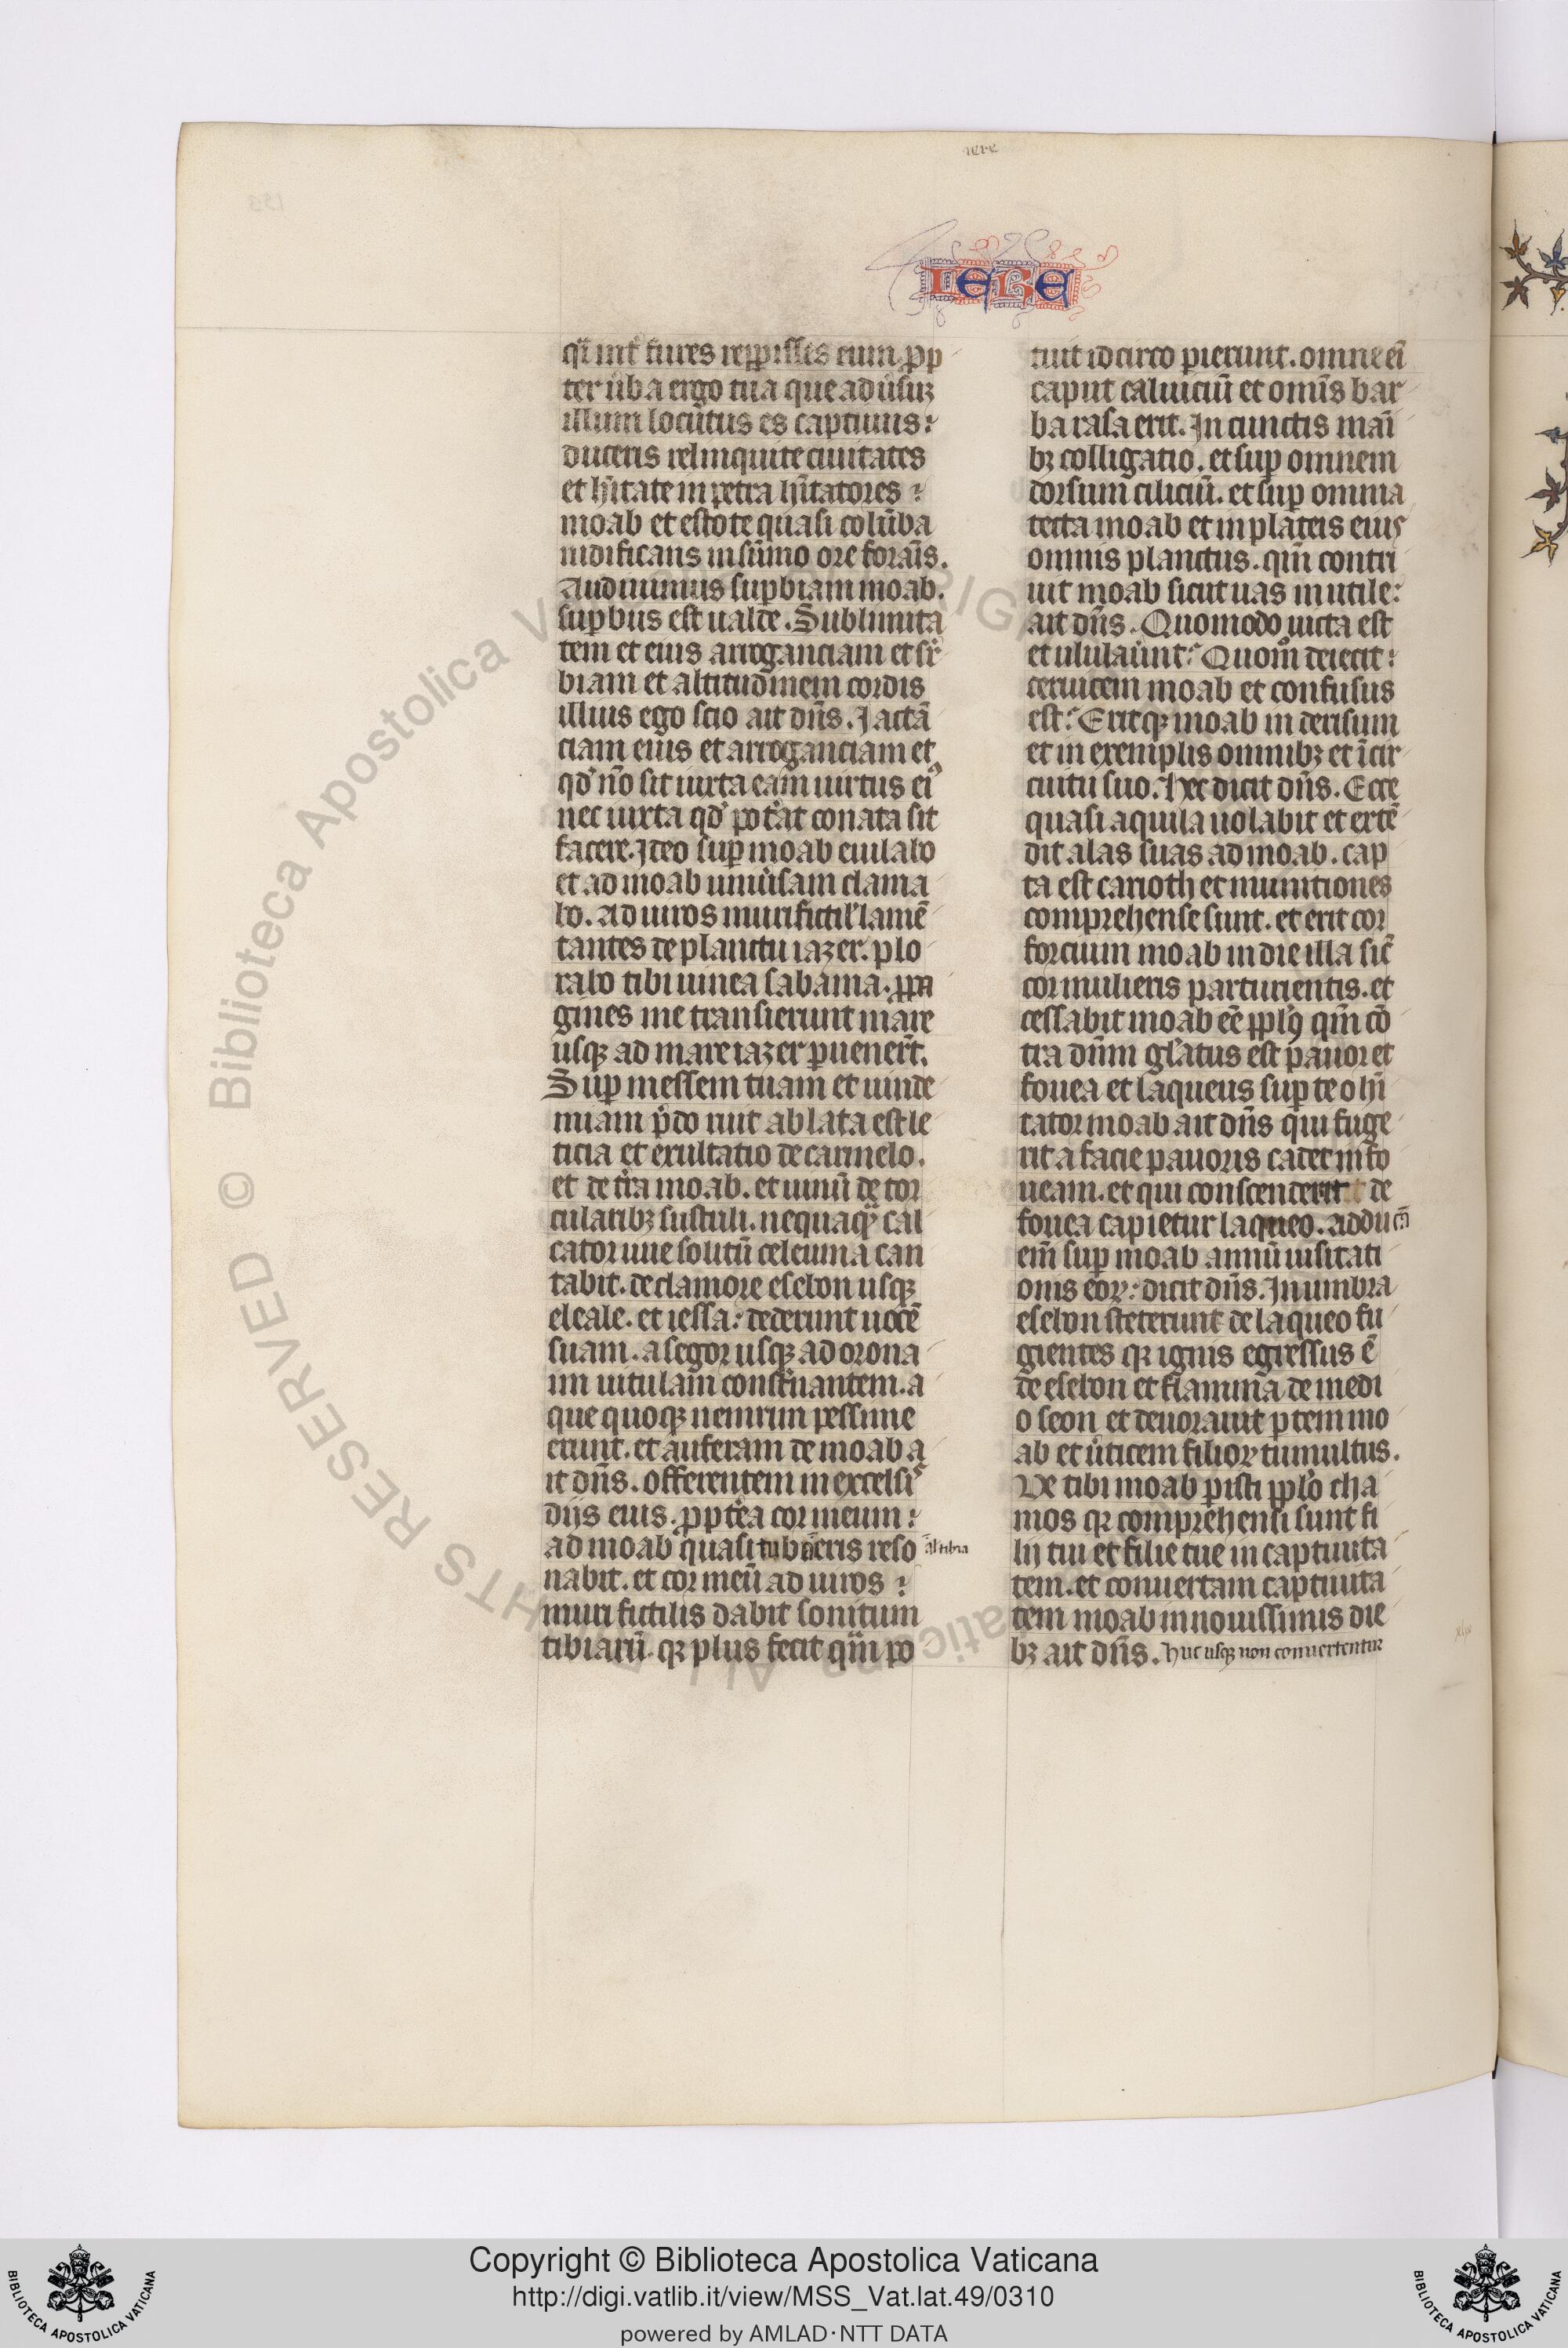 iere
IERE
qͣi int̾ fures repp̲isses eum. ꝓp
ter u̾ba ergo tua que aduͥsuꝫ
illum locutus es captiuus:
duceris relinquite ciuitates
et hi̾tate in petra hi̾tatores :
moab et estote quasi colu̅ba
nidificans in su̅mo ore forai̅s.
Audiuimus suꝑbiam moab.
suꝑbus est ualde. Sublimita
tem et eius arroganciam et suꝑ
biam et altitudinem cordis
illius ego scio ait dn̅s. Jacta̅
ciam eius et arroganciam et
qd̾ no̅ sit iuxta eam uirtus eiꝰ
nec iuxta qd̾ pot̾at conata sit
facere. Ideo suꝑ moab eiulabo
et ad moab uniu̾sam clama
bo. Ad uiros muri fictil̾ lame̅
tantes de planctu iazer. plo
rabo tibi uinea sabama. ꝓpa
gines me transierunt mare
usqꝫ ad mare iazer ꝑuener̅t.
Suꝑ messem tuam et uinde
miam p̾do ruit ablata est le
ticia et exultatio de carmelo.
et de t̾ra moab. et uinu̅ de tor
cularibꝫ sustuli. nequaqͣꝫ cal
cator uue solitu̅ celeuma can
tabit. de clamore esebon usqꝫ
eleale. et iessa: dederunt uoce̅
suam. a segor usqꝫ ad orona
im uitulam const̾nantem. a
que quoqꝫ nemrim pessime
erunt. et auferam de moab a
it dn̅s. offerentem in excelsis
diis eius. ꝓpt̾ea cor meum :
ad moab quasi tub eris reso
al̾ tibia
nabit. et cor meu̅ ad uiros :
muri fictilis dabit sonitum
tibiaru̅. qꝛ plus fecit qͣm po
tuit idcirco ꝑierunt. omne ei̅
caput caluiciu̅ et omi̅s bar
ba rasa erit. In cunctis mani
bꝫ colligatio. et suꝑ omnem
dorsum ciliciu̅. et suꝑ omnia
tecta moab et in plateis eius
omnis planctus. qm̅ contri
uit moab sicut uas inutile:
ait dn̅s. Quomodo uicta est
et ululaue̾nt: Quom̊ deiecit :
ceruicem moab et confusus
est: Eritqꝫ moab in derisum
et in exemplis omnibꝫ et i̅ cir
cuitu suo. Hec dicit dn̅s. Ecce
quasi aquila uolabit et exte̅
dit alas suas ad moab. cap
ta est carioth et munitiones
comprehense sunt. et erit cor
forcium moab in die illa sic̅
cor mulieris parturientis. et
cessabit moab ee̅ pplꝰs qm̅ co̅
tra dn̅m gl̾atus est pauor et
fouea et laqueus suꝑ te o hi̾
tator moab ait dn̅s qui fuge
rit a facie pauoris cadet in fo
ueam. et qui conscenderit de
fouea capietur laqueo. adducā
em̅ suꝑ moab annu̅ uisitati
onis eoꝝ: dicit dn̅s. In umbra
esebon steterunt de laqueo fu
gientes qꝛ ignis egressus e̅
de esebon et flamma de medi
o seon et deuorauit ꝑtem mo
ab et u̾ticem filioꝝ tumultus.
Ve tibi moab ꝑisti pplo̾ cha
mos qꝛ comprehensi sunt fi
lij tui et filie tue in captiuita
tem. et conuertam captiuita
tem moab in nouissimis die
bꝫ ait dn̅s. Huc usqꝫ non conuertentur
© Biblioteca Apostolica Vaticana
ALL RIGHTS RESERVED
Copyright © Biblioteca Apostolica Vaticana
http://digi.vatlib.it/view/MSS_Vat.lat.49/0310
powered by AMLAD·NTT DATA
BIBLIOTECA APOSTOLICA VATICANA
BIBLIOTECA APOSTOLICA VATICANA